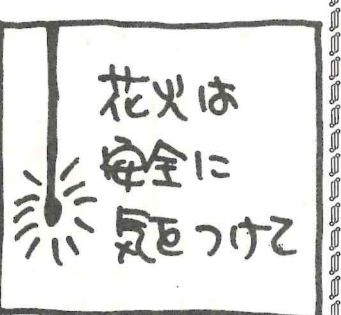 花火は
安全に
気をつけて